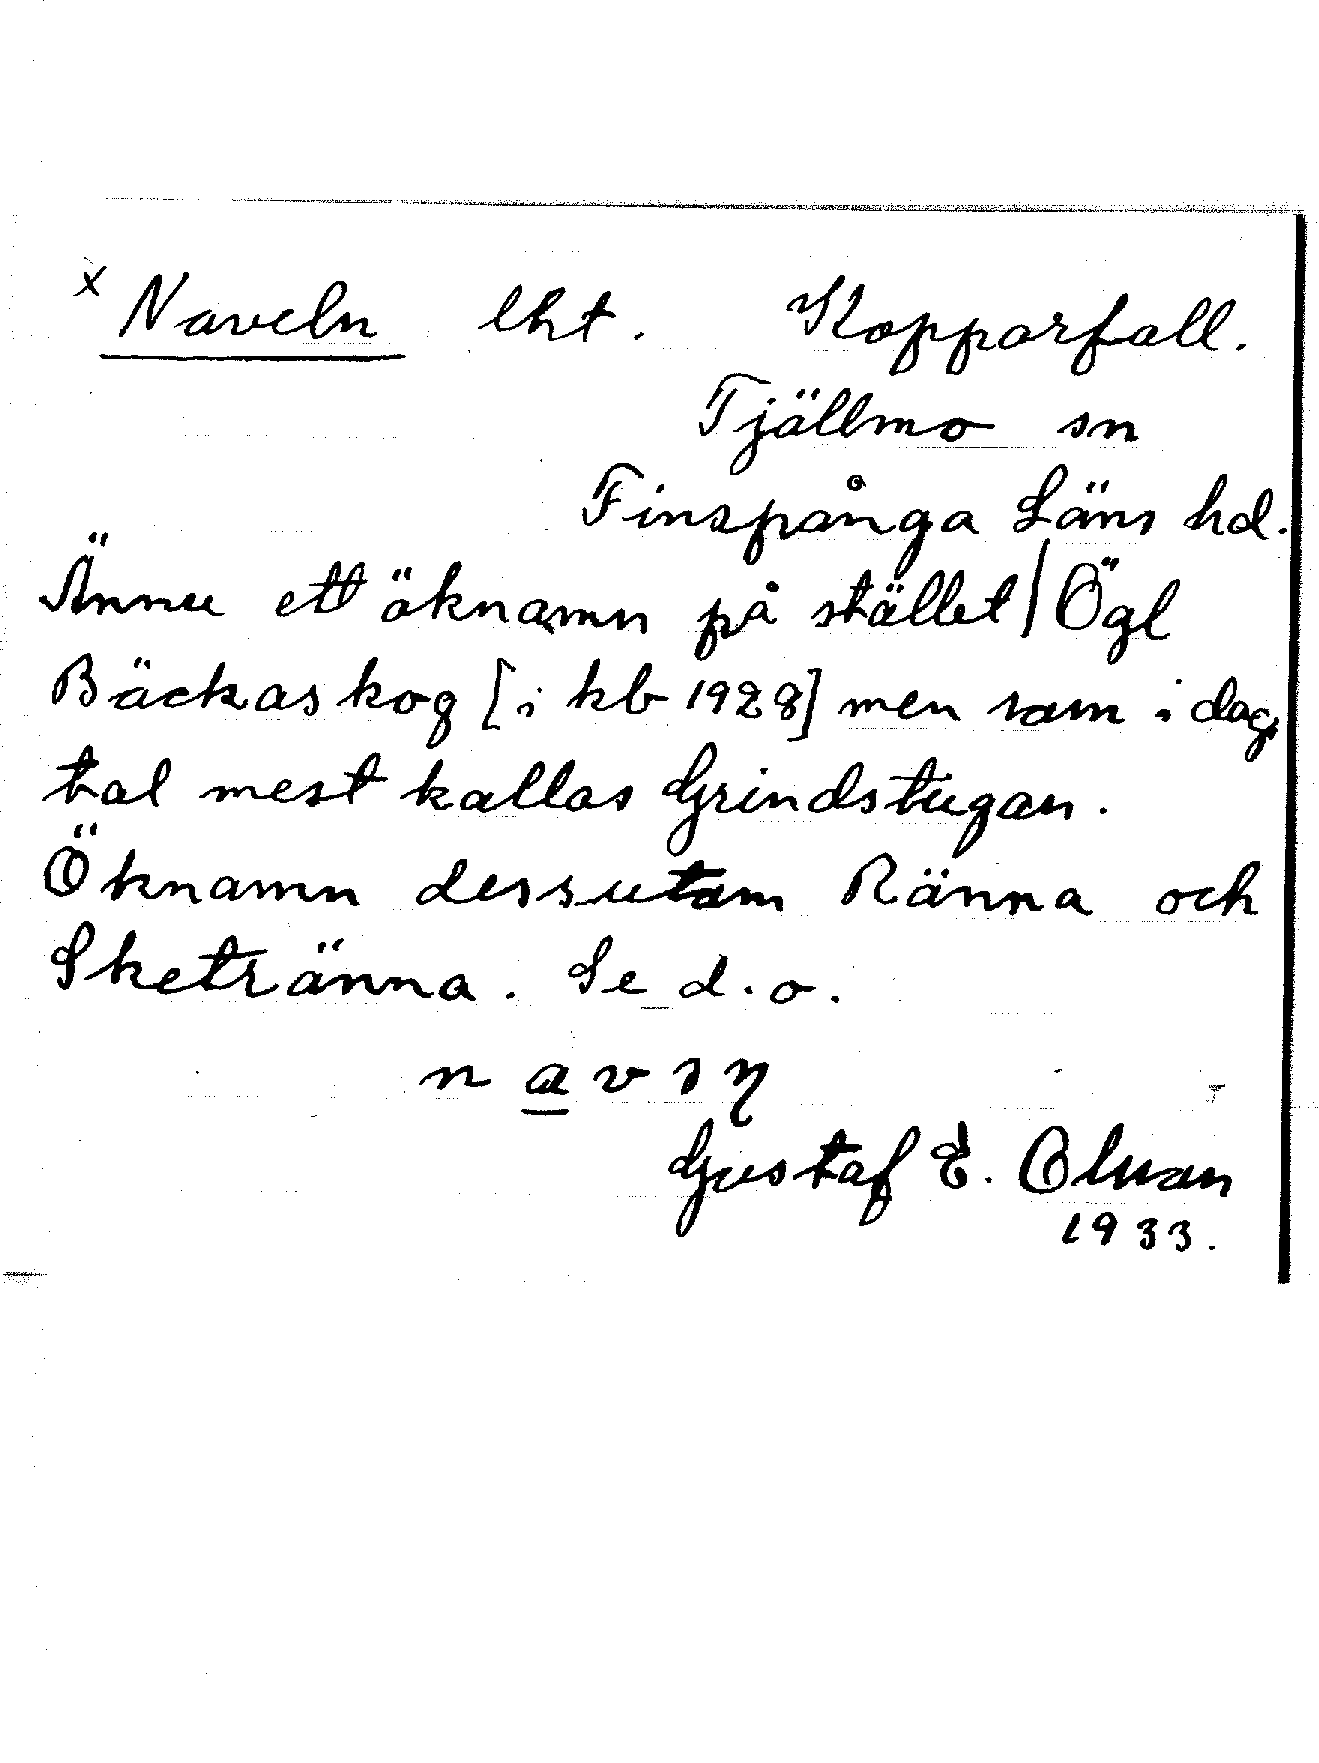 x Naveln lht. Kopparfall.
Tjällmo sn
Finspånga Läns hd.
Ännu ett öknamn på stället | Ögl
Bäckaskog [i kb 1928] men som i dag.
tal mest kallas Grindstugan.
Öknamn dessutom Ränna och
Sketränna. Se d. o.
Gustaf E. Olsson
1933.